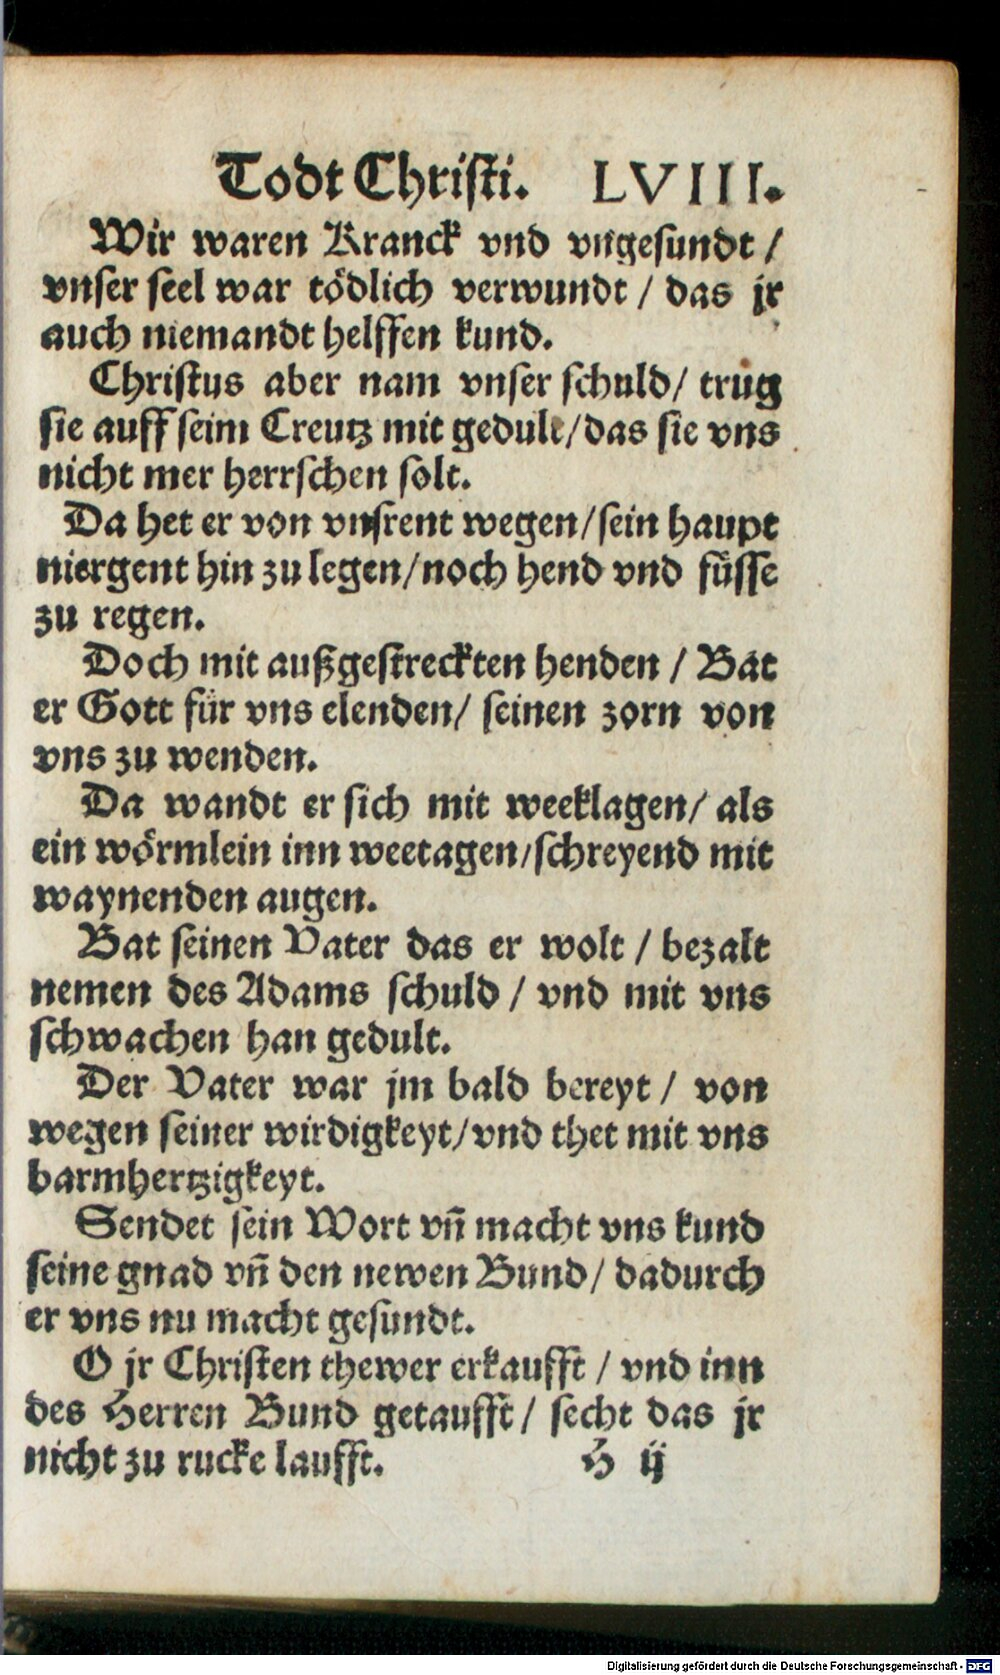 Todt Christi. LVIII.
Wir waren Kranck vnd vngesundt /
vnser seel war tödlich verwundt / das jr
auch niemandt helffen kund.
Christus aber nam vnser schuld / trug
sie auff seim Creutz mit gedult / das sie vns
nicht mer herrschen solt.
Da het er von vnsrent wegen / sein haupt
niergent hin zu legen / noch hend vnd füsse
zu regen.
Doch mit außgestreckten henden / Bat
er Gott für vns elenden / seinen zorn von
vns zu wenden.
Da wandt er sich mit weeklagen / als
ein wörmlein inn weetagen / schreyend mit
waynenden augen.
Bat seinen Vater das er wolt / bezalt
nemen des Adams schuld / vnd mit vns
schwachen han gedult.
Der Vater war jm bald bereyt / von
wegen seiner wirdigkeyt / vnd thet mit vns
barmhertzigkeyt.
Sendet sein Wort vñ macht vns kund
seine gnad vñ den newen Bund / dadurch
er vns nu macht gesundt.
O jr Christen thewer erkaufft / vnd inn
des Herren Bund getaufft / secht das jr
nicht zu rucke laufft. H ij
Digitalisierung gefördert durch die Deutsche Forschungsgemeinschaft - DFG